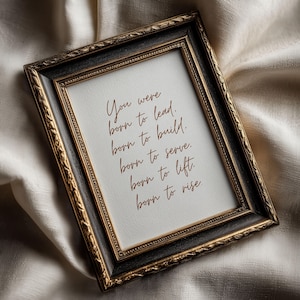 You were
born to lead.
born to build.
born to serve.
born to lift
born to rise